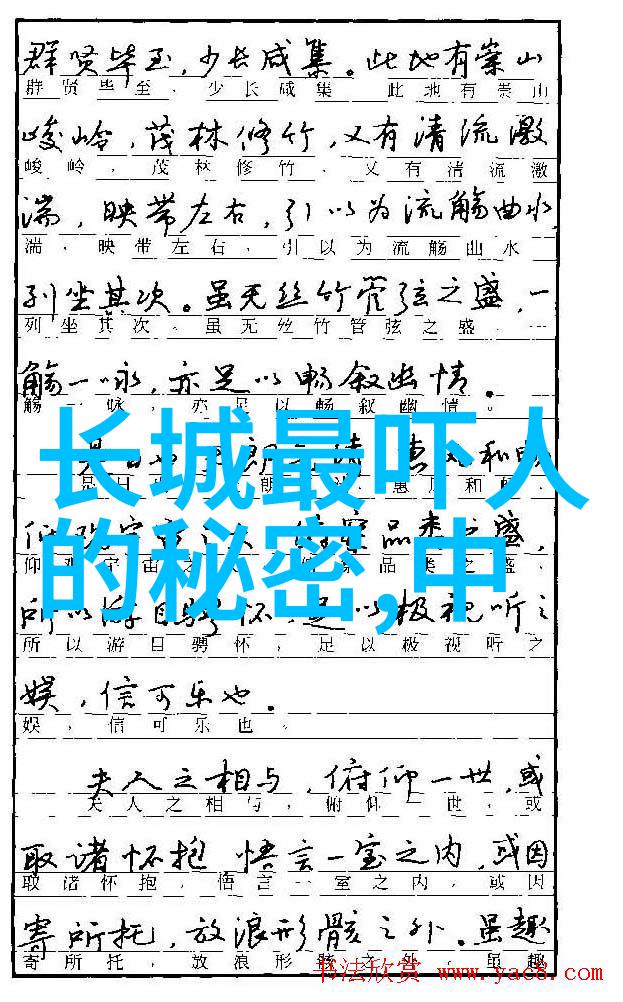 群贤毕至，少长咸集。此地有崇山
群贤毕至，少长咸集。此地有崇山
峻岭，茂林修竹，又有清流激
峻岭，茂林修竹，又有清流激
湍，映带左右，引以为流觞曲水，
湍，映带左右，引以为流觞曲水
列坐其次。虽无丝竹管弦之盛，一
列坐其次。虽无丝竹管弦之盛，一
觞一咏，亦足以畅叙幽情。
觞一咏，亦足以畅叙幽情。
长城最吓人
的秘密,中
是日也 朗 清 惠风和畅
是日 朗 惠风和
仰观宇宙之大 察品类之盛，
仰观宇宙之 品类之盛，
所以游目骋怀，足以极视听之
所以游目骋怀，足以极视听之
娱，信可乐也。
娱，信可乐也。
夫人之相与，俯仰一世，或
夫人之相与，俯仰一世，或
取诸怀抱 悟言一室之内，或因
取诸怀抱，悟言一室之内，或因
寄所托，放浪形骸之外。虽趣
寄所托，放浪形骸之外。虽趣
书法欣赏 www.yac8.com